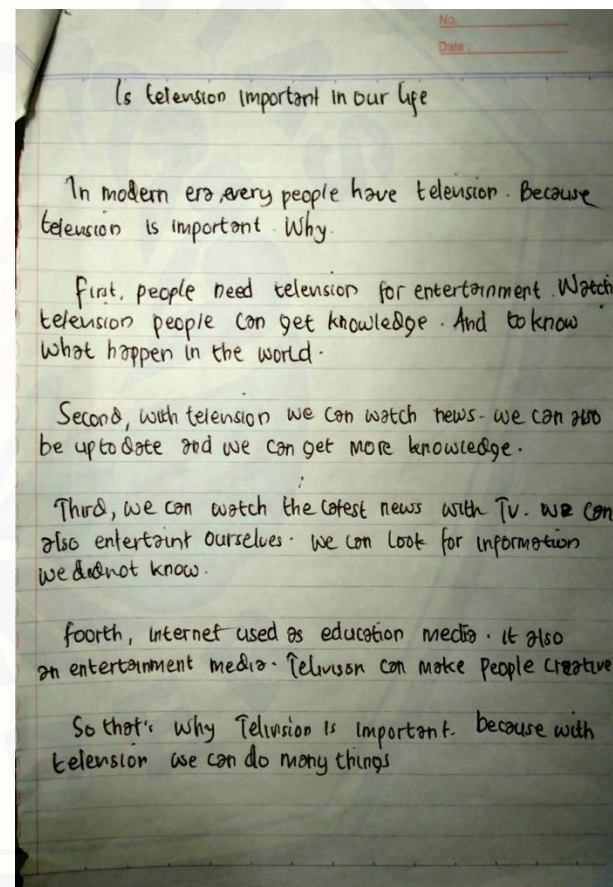 No.
Date :
Is telension important in our life
In modern era, every people have telension. Because
telension is important. Why.
First, people need telension for entertainment. Watch
telension people can get knowledge. And to know
what happen in the world.
Second, with telension we can watch news. we can also
be up to date and we can get more knowledge.
Third, we can watch the latest news with Tv. we can
also entertaint ourselves. we can look for information
we didnot know.
foorth, internet used as education media. it also
an entertainment media. Telivison can make people creative
So that's why Telivsion is important. because with
telension we can do many things